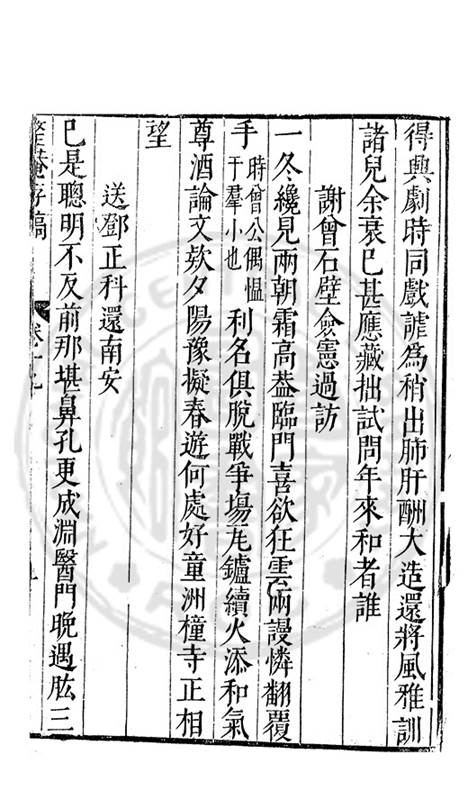 得興劇時同戲謔為稍出肺肝酬大造還將風雅訓
諸兒余衰已甚應藏拙試問年來和者誰
謝曾石壁僉憲過訪
一冬纔見兩朝霜高葢臨門喜欲狂雲雨謾憐翻覆
手時曾公偶愠于羣小也利名俱脫戰爭塲𤬪鑪續火添和氣
尊酒論文欵夕陽豫擬春遊何處好童洲橦寺正相
望
送鄧正科還南安
已是聰明不反前那堪鼻孔更成淵醫門晚遇肱三
整菴存稿 卷十九